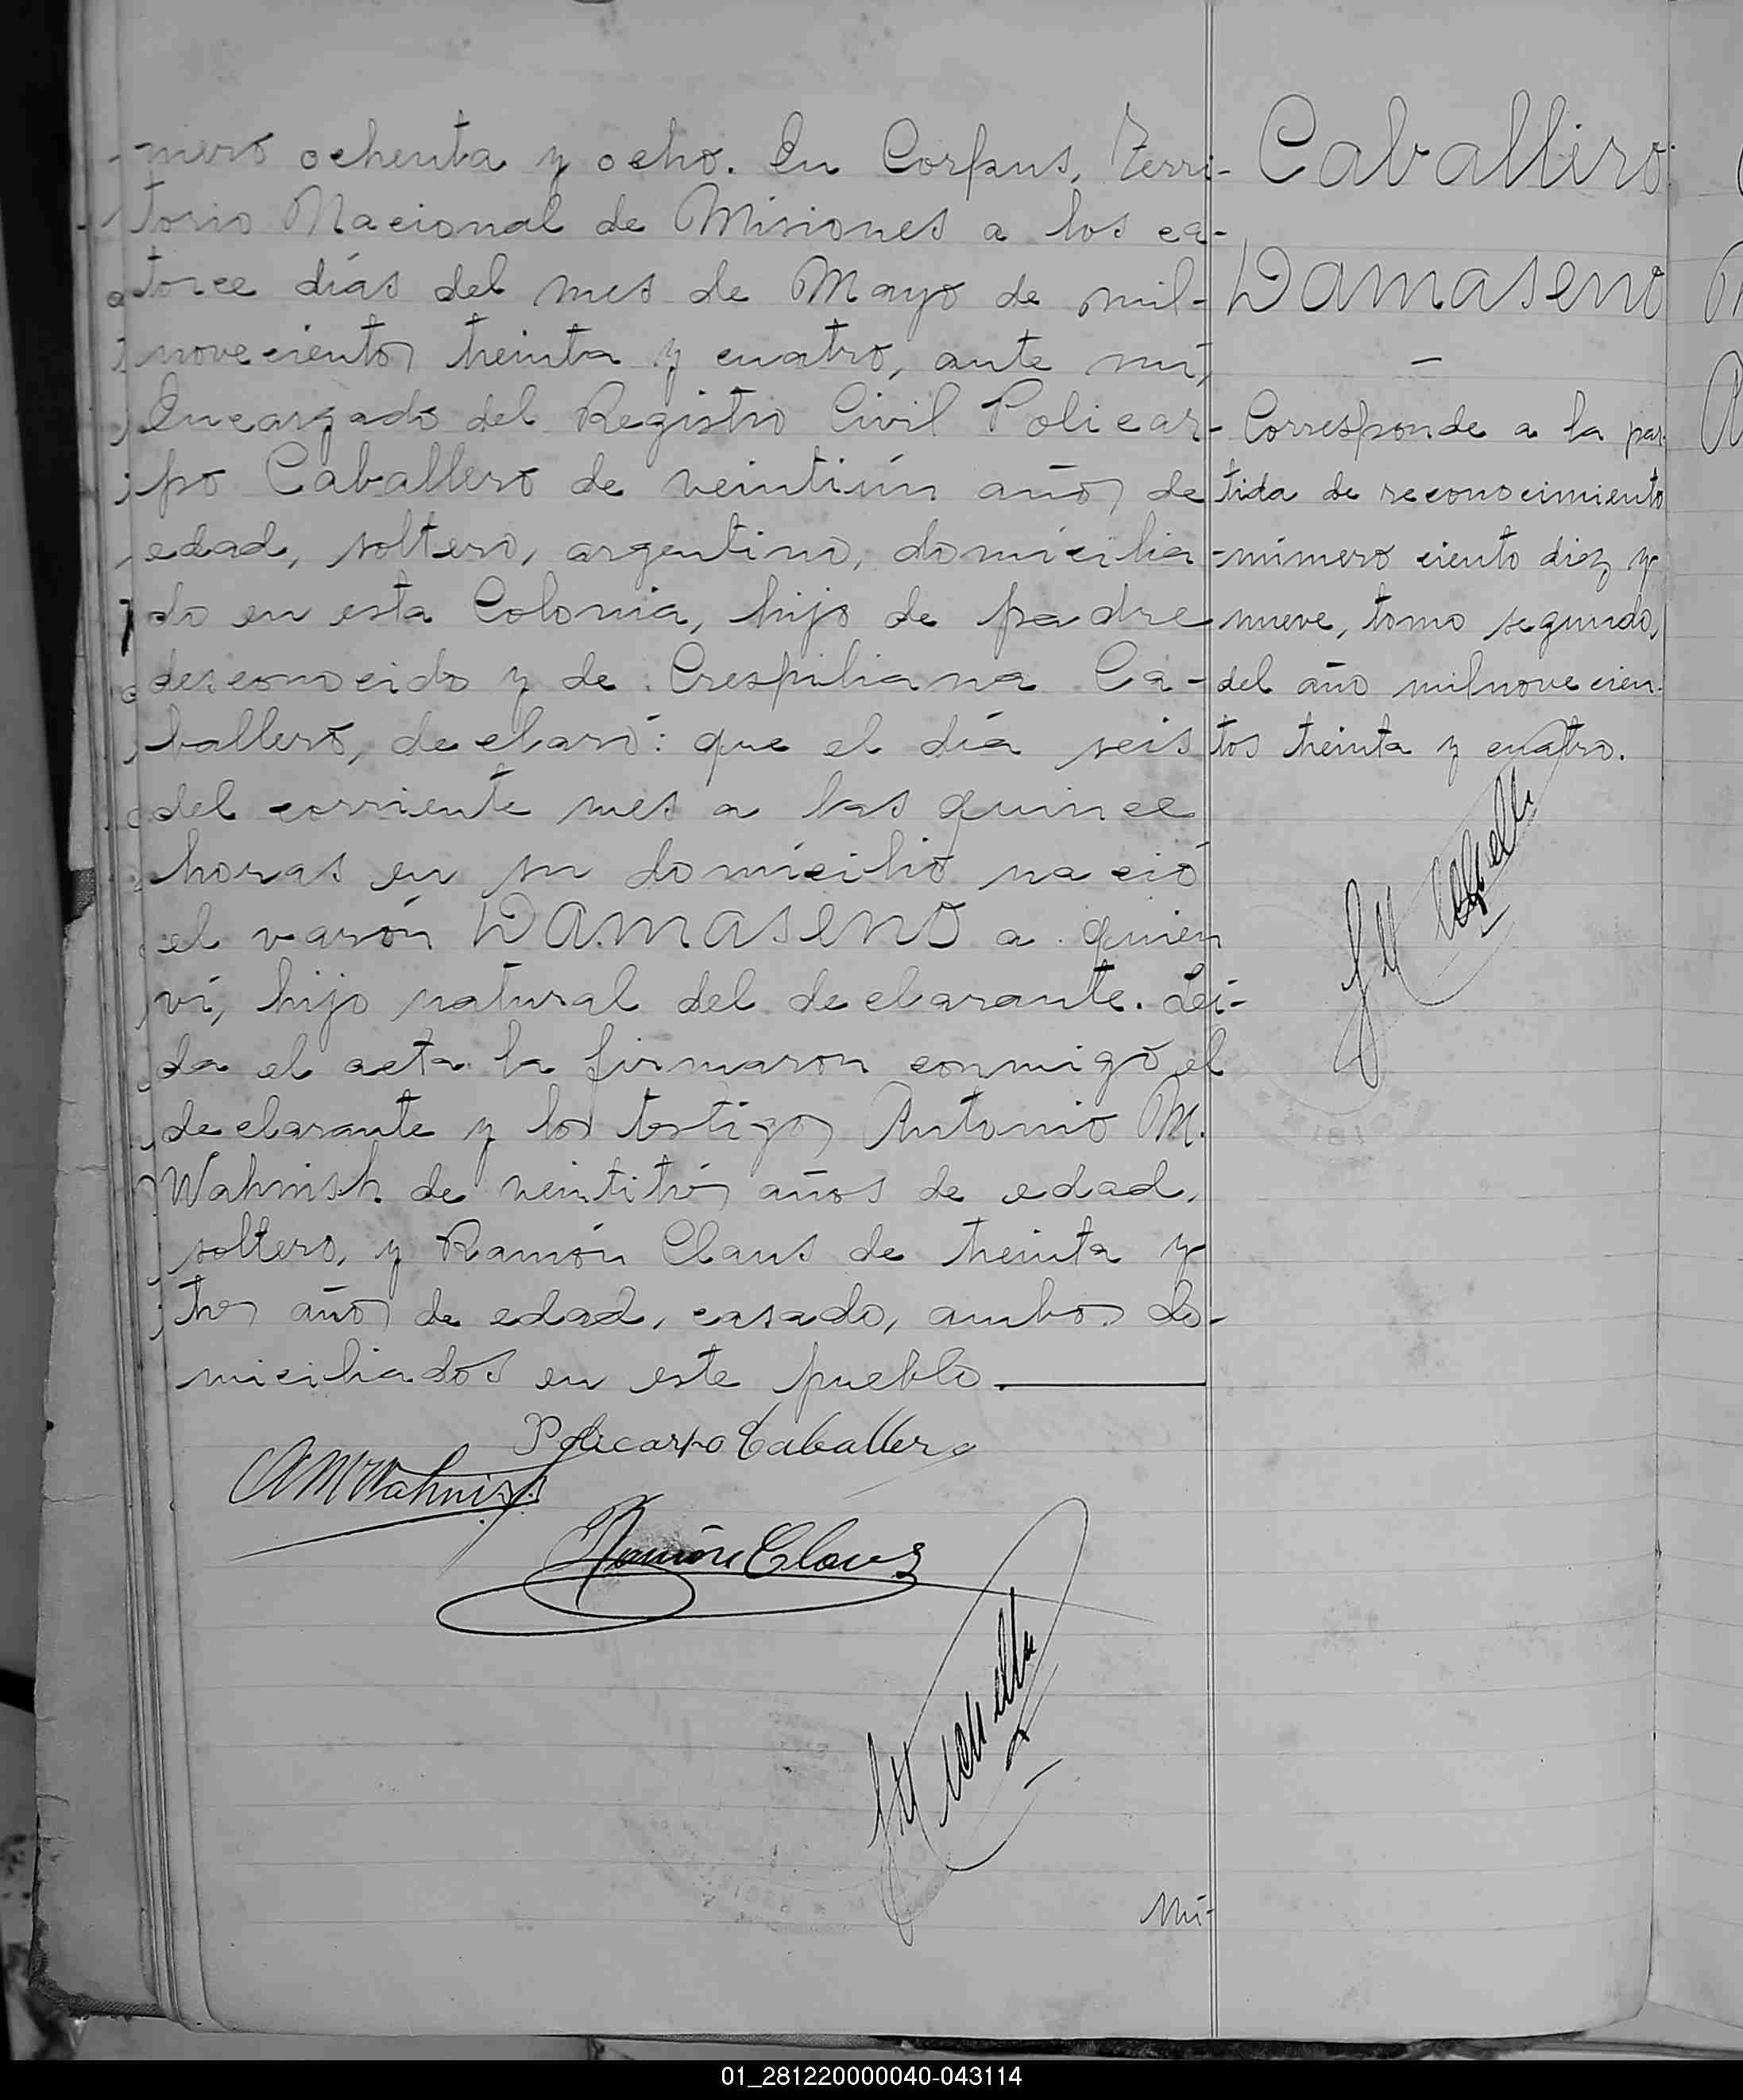 -mero ochenta y ocho. En Corpus, Terri-
torio Nacional de Misiones a los ca-
torce días del mes de Mayo de mil-
novecientos treinta y cuatro, ante mí,
Encargado del Registro Civil Policar-
po Caballero de veintiún años de
edad, soltero, argentino, domicilia-
do en esta Colonia, hijo de padre
desconocido y de Crespiliana Ca-
ballero, declaró: que el día seis
del corriente mes a las quince
horas en su domicilio nació
el varón DAMASENO a quien
ví, hijo natural del declarante. Leí-
da el acta la firmaron conmigo el
declarante y los testigos Antonio M.
Wahnish de veintitrés años de edad,
soltero, y Ramón Claus de treinta y
tres años de edad, casado, ambos do-
miciliados en este pueblo.
Policarpo Caballero
AMWahnish
Ramón Claus
Nú-
Caballero
DAMASENO
Corresponde a la par-
tida de reconocimiento
número ciento diez y
nueve, tomo segundo,
del año milnovecien-
tos treinta y cuatro.
01_281220000040-043114